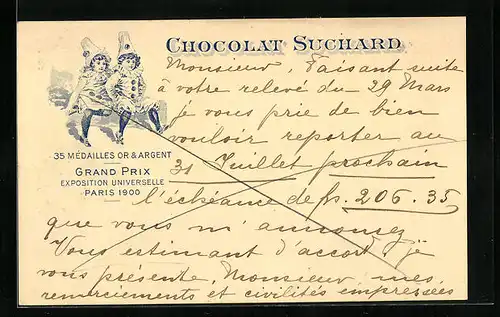 CHOCOLAT SUCHARD
Monsieur, Faisant suite
à votre relevé du 29 Mars
je vous prie de bien
vouloir reporter au
31 Juillet prochain
l'échéance de fr. 206.35
que vous m'annoncez
Vous estimant d'accord, je
vous présente, Monsieur, mes
remerciements et civilités empressées
35 MÉDAILLES OR & ARGENT
GRAND PRIX
EXPOSITION UNIVERSELLE
PARIS 1900